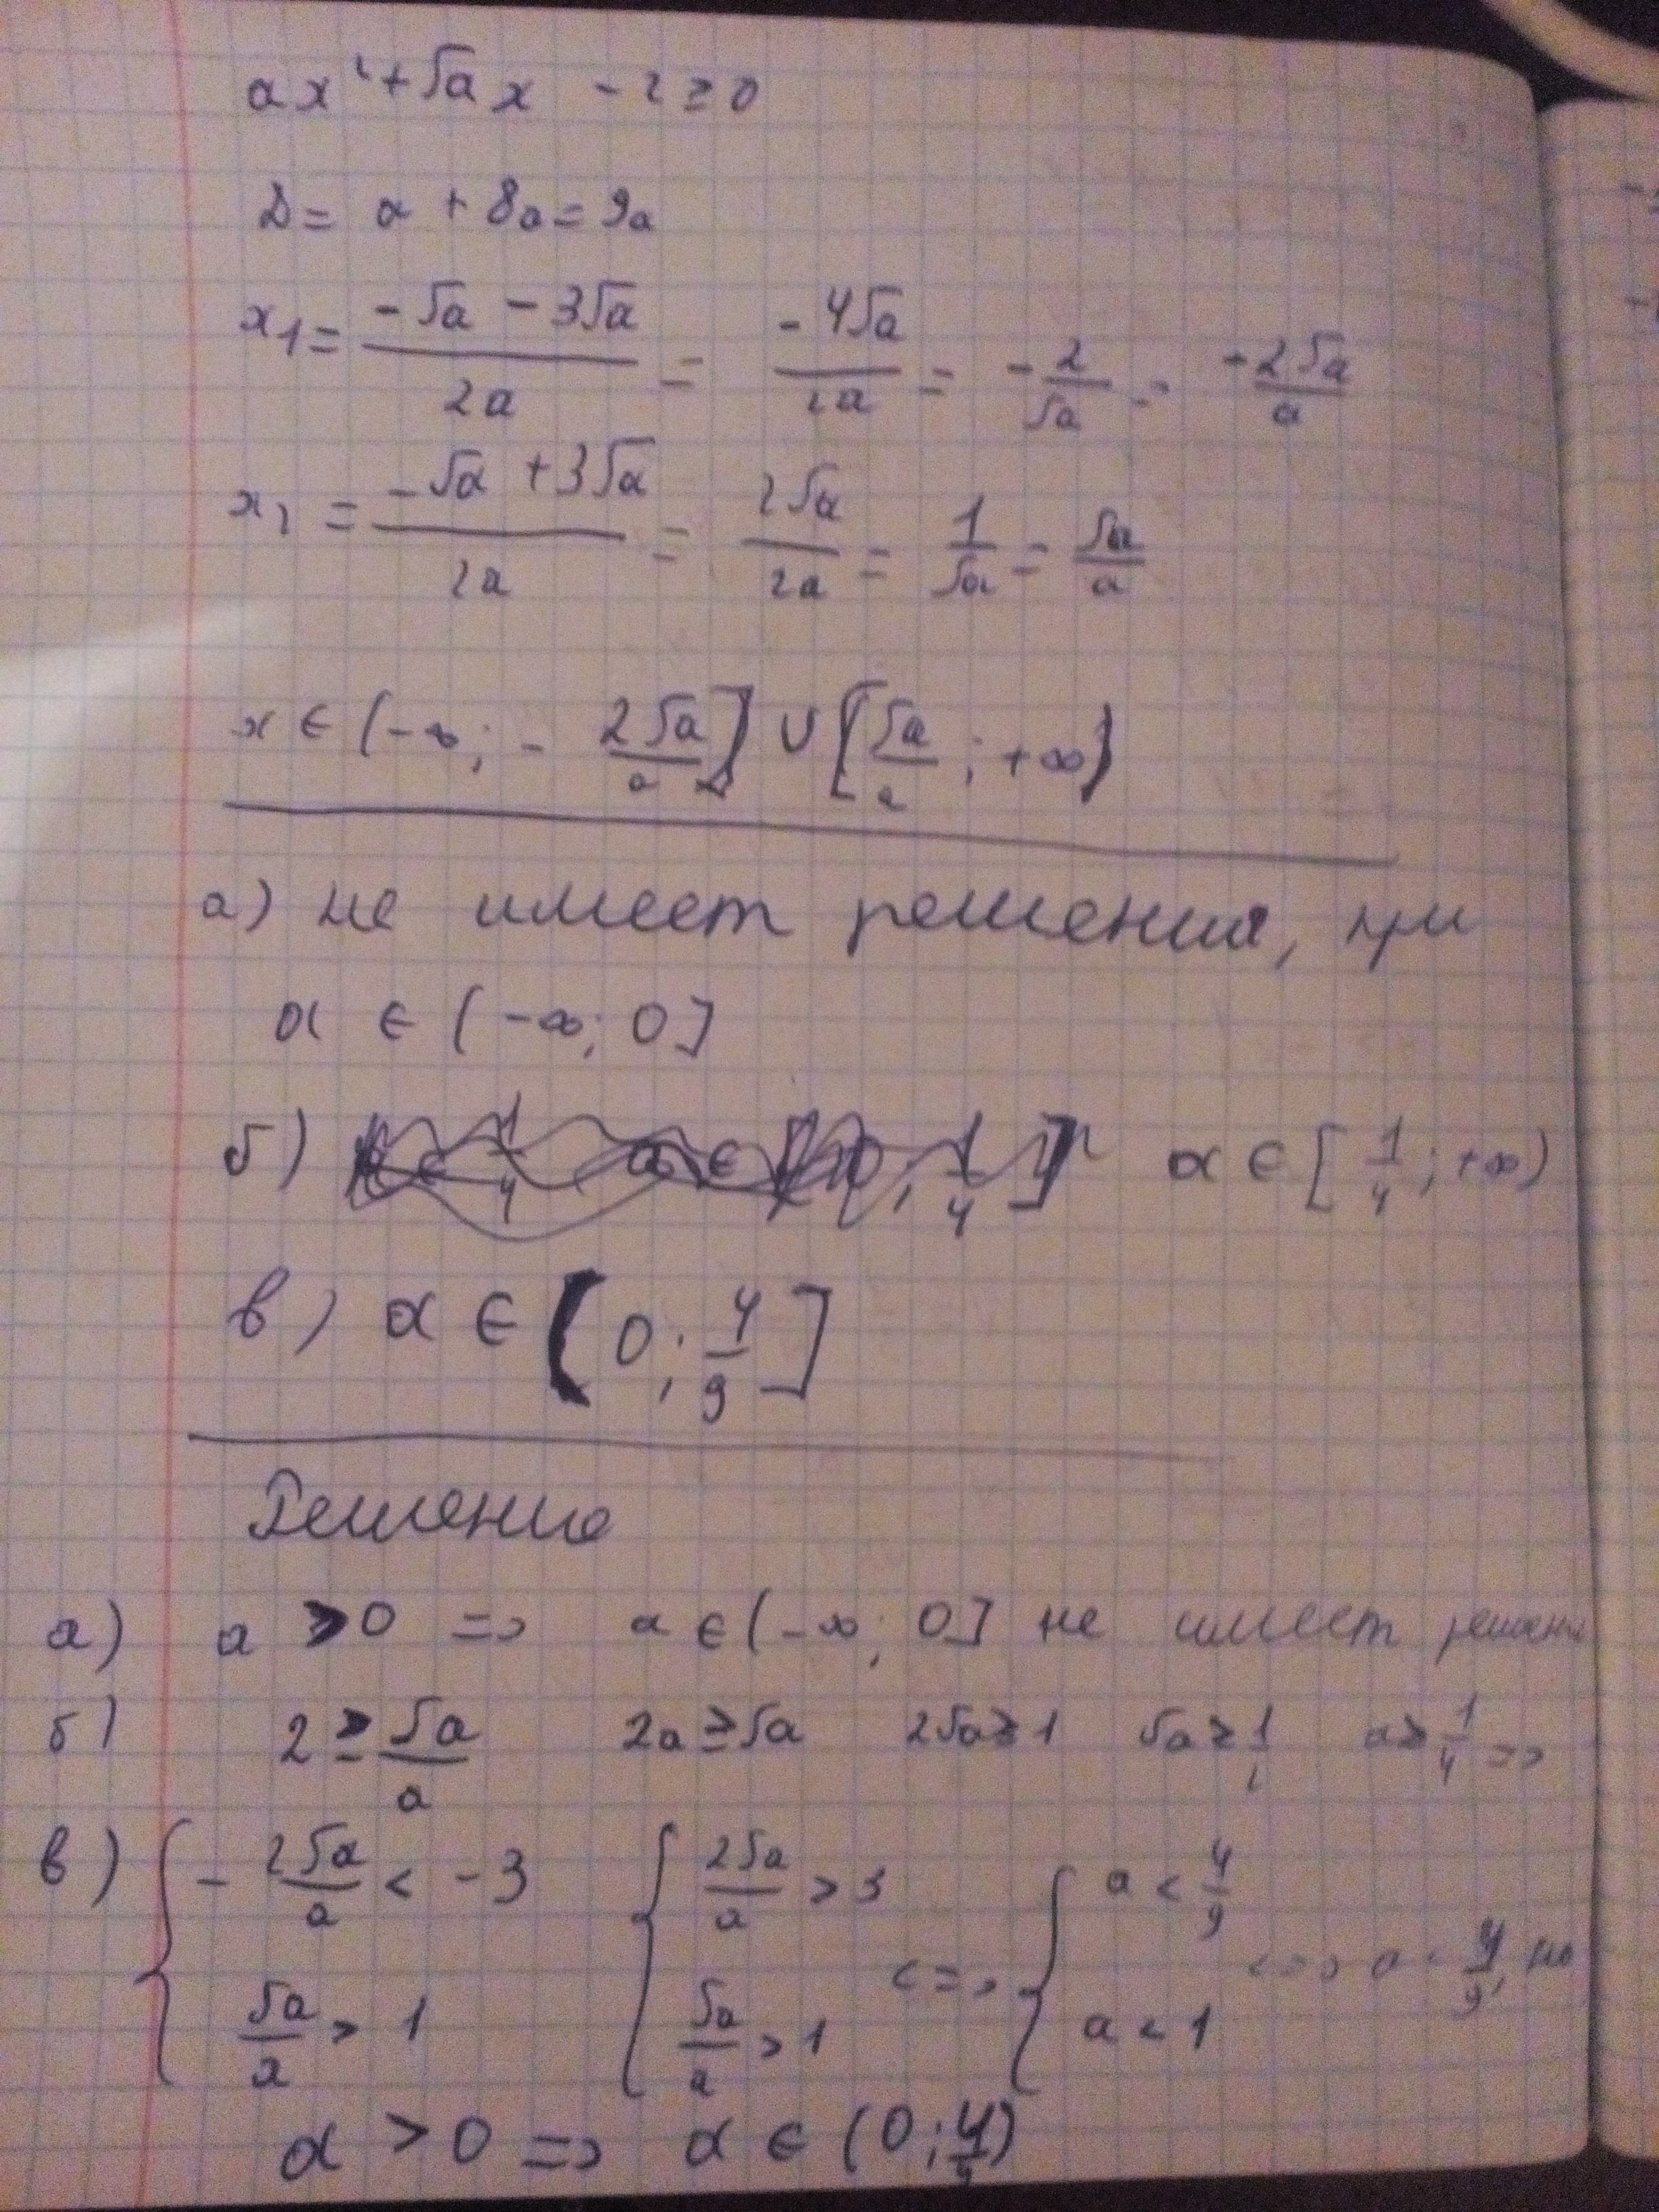 ax² + √a x - 2 ≥ 0
D = a + 8a = 9a
x₁ = (-√a - 3√a)/(2a) = (-4√a)/(2a) = -2/√a = (-2√a)/a
x₂ = (-√a + 3√a)/(2a) = (2√a)/(2a) = 1/√a = √a/a
x ∈ (-∞; - 2√a/a] ∪ [√a/a; +∞)
а) не имеет решения, при
a ∈ (-∞; 0]
б) a ∈ [1/4; +∞)
в) a ∈ (0; 4/9]
Решение
а) a > 0 => a ∈ (-∞; 0] не имеет решения
б) 2 ≥ √a/a 2a ≥ √a 2√a ≥ 1 √a ≥ 1/2 a ≥ 1/4 =>
в) { - 2√a/a < -3 { 2√a/a > 3 { a < 4/9
√a/a > 1 √a/a > 1 <=> a < 1 <=> a < 4/9, но
a > 0 => a ∈ (0; 4/9)